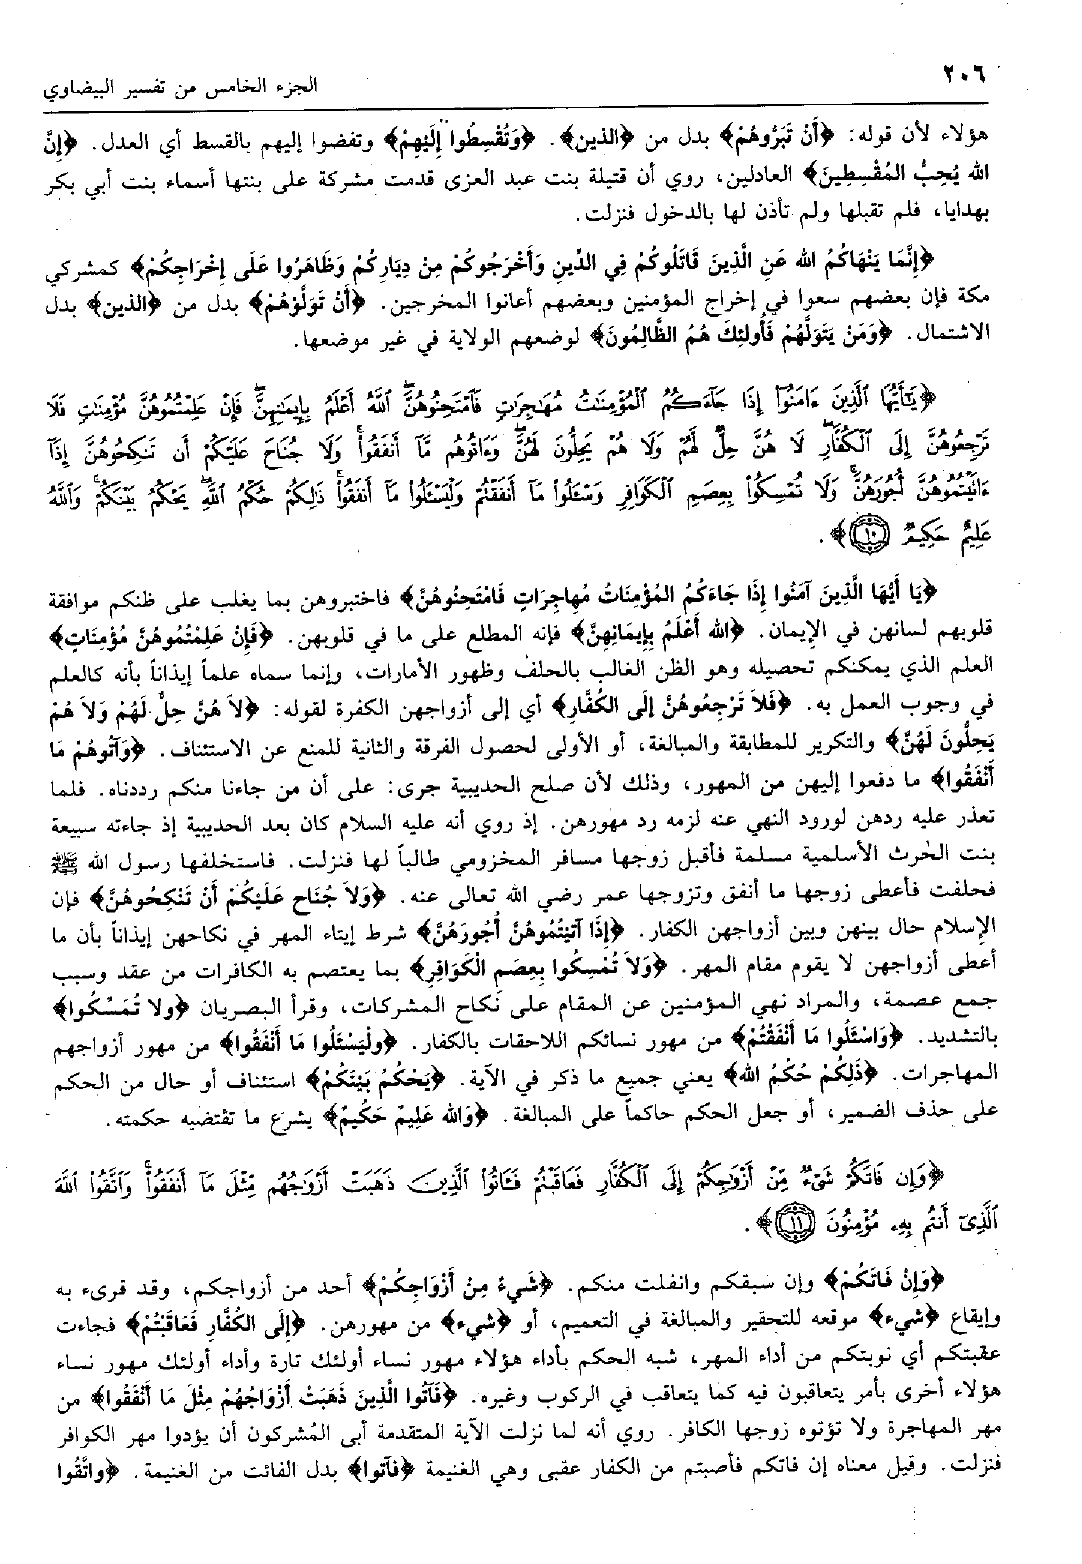 ٢٠٦
الجزء الخامس من تفسير البيضاوي
هؤلاء لأن قوله: ﴿أَنْ تَبَرُّوهُمْ﴾ بدل من ﴿الذين﴾. ﴿وَتُقْسِطُوا إِلَيْهِمْ﴾ وتفضوا إليهم بالقسط أي العدل. ﴿إِنَّ
الله يُحِبُّ المُقْسِطِينَ﴾ العادلين، روي أن قتيلة بنت عبد العزى قدمت مشركة على بنتها أسماء بنت أبي بكر
بهدايا، فلم تقبلها ولم تأذن لها بالدخول فنزلت.
﴿إِنَّمَا يَنْهَاكُمُ الله عَنِ الَّذِينَ قَاتَلُوكُمْ فِي الدِّينِ وَأَخْرَجُوكُمْ مِنْ دِيَارِكُمْ وَظَاهَرُوا عَلَى إِخْرَاجِكُمْ﴾ كمشركي
مكة فإن بعضهم سعوا في إخراج المؤمنين وبعضهم أعانوا المخرجين. ﴿أَنْ تَوَلَّوْهُمْ﴾ بدل من ﴿الذين﴾ بدل
الاشتمال. ﴿وَمَنْ يَتَوَلَّهُمْ فَأُولئِكَ هُمُ الظَّالِمُونَ﴾ لوضعهم الولاية في غير موضعها.
﴿يَٰٓأَيُّهَا ٱلَّذِينَ ءَامَنُوٓا۟ إِذَا جَآءَكُمُ ٱلْمُؤْمِنَٰتُ مُهَٰجِرَٰتٍ فَٱمْتَحِنُوهُنَّ ۖ ٱللَّهُ أَعْلَمُ بِإِيمَٰنِهِنَّ ۖ فَإِنْ عَلِمْتُمُوهُنَّ مُؤْمِنَٰتٍ فَلَا
تَرْجِعُوهُنَّ إِلَى ٱلْكُفَّارِ ۖ لَا هُنَّ حِلٌّ لَّهُمْ وَلَا هُمْ يَحِلُّونَ لَهُنَّ ۖ وَءَاتُوهُم مَّآ أَنفَقُوا۟ ۚ وَلَا جُنَاحَ عَلَيْكُمْ أَن تَنكِحُوهُنَّ إِذَآ
ءَاتَيْتُمُوهُنَّ أُجُورَهُنَّ ۚ وَلَا تُمْسِكُوا۟ بِعِصَمِ ٱلْكَوَافِرِ وَسْـَٔلُوا۟ مَآ أَنفَقْتُمْ وَلْيَسْـَٔلُوا۟ مَآ أَنفَقُوا۟ ۚ ذَٰلِكُمْ حُكْمُ ٱللَّهِ ۖ يَحْكُمُ بَيْنَكُمْ ۚ وَٱللَّهُ
عَلِيمٌ حَكِيمٌ ۝١٠﴾.
﴿يَا أَيُّهَا الَّذِينَ آمَنُوا إِذَا جَاءَكُمُ المُؤْمِنَاتُ مُهاجِرَاتٍ فَامْتَحِنُوهُنَّ﴾ فاختبروهن بما يغلب على ظنكم موافقة
قلوبهم لسانهن في الإِيمان. ﴿الله أَعْلَمُ بِإِيمَانِهِنَّ﴾ فإنه المطلع على ما في قلوبهن. ﴿فَإِنْ عَلِمْتُمُوهُنَّ مُؤْمِنَاتٍ﴾
العلم الذي يمكنكم تحصيله وهو الظن الغالب بالحلف وظهور الأمارات، وإنما سماه علماً إيذاناً بأنه كالعلم
في وجوب العمل به. ﴿فَلاَ تَرْجِعُوهُنَّ إِلَى الكُفَّارِ﴾ أي إلى أزواجهن الكفرة لقوله: ﴿لاَ هُنَّ حِلٌّ لَهُمْ وَلاَ هُمْ
يَحِلُّونَ لَهُنَّ﴾ والتكرير للمطابقة والمبالغة، أو الأولى لحصول الفرقة والثانية للمنع عن الاستئناف. ﴿وَآتُوهُمْ مَا
أَنْفَقُوا﴾ ما دفعوا إليهن من المهور، وذلك لأن صلح الحديبية جرى: على أن من جاءنا منكم رددناه. فلما
تعذر عليه ردهن لورود النهي عنه لزمه رد مهورهن. إذ روي أنه عليه السلام كان بعد الحديبية إذ جاءته سبيعة
بنت الحٰرث الأسلمية مسلمة فأقبل زوجها مسافر المخزومي طالباً لها فنزلت. فاستخلفها رسول الله ﷺ
فحلفت فأعطى زوجها ما أنفق وتزوجها عمر رضي الله تعالى عنه. ﴿وَلاَ جُنَاح عَلَيْكُمْ أَنْ تَنْكِحُوهُنَّ﴾ فإن
الإِسلام حال بينهن وبين أزواجهن الكفار. ﴿إِذَا آتَيْتُمُوهُنَّ أُجُورَهُنَّ﴾ شرط إيتاء المهر في نكاحهن إيذاناً بأن ما
أعطى أزواجهن لا يقوم مقام المهر. ﴿وَلاَ تُمْسِكُوا بِعِصَمِ الْكَوَافِرِ﴾ بما يعتصم به الكافرات من عقد وسبب
جمع عصمة، والمراد نهي المؤمنين عن المقام على نكاح المشركات، وقرأ البصريان ﴿ولا تُمَسِّكُوا﴾
بالتشديد. ﴿وَاسْئَلُوا مَا أَنْفَقْتُمْ﴾ من مهور نسائكم اللاحقات بالكفار. ﴿وَلْيَسْئَلُوا مَا أَنْفَقُوا﴾ من مهور أزواجهم
المهاجرات. ﴿ذَلِكُمْ حُكْمُ الله﴾ يعني جميع ما ذكر في الآية. ﴿يَحْكُمُ بَيْنَكُمْ﴾ استئناف أو حال من الحكم
على حذف الضمير، أو جعل الحكم حاكماً على المبالغة. ﴿وَالله عَلِيمٌ حَكِيمٌ﴾ يشرع ما تقتضيه حكمته.
﴿وَإِن فَاتَكُمْ شَىْءٌ مِّنْ أَزْوَٰجِكُمْ إِلَى ٱلْكُفَّارِ فَعَاقَبْتُمْ فَـَٔاتُوا۟ ٱلَّذِينَ ذَهَبَتْ أَزْوَٰجُهُم مِّثْلَ مَآ أَنفَقُوا۟ ۚ وَٱتَّقُوا۟ ٱللَّهَ
ٱلَّذِىٓ أَنتُم بِهِۦ مُؤْمِنُونَ ۝١١﴾.
﴿وَإِنْ فَاتَكُمْ﴾ وإن سبقكم وانفلت منكم. ﴿شَيْءٌ مِنْ أَزْوَاجِكُمْ﴾ أحد من أزواجكم، وقد قرىء به
وإيقاع ﴿شيء﴾ موقعه للتحقير والمبالغة في التعميم، أو ﴿شيء﴾ من مهورهن. ﴿إِلَى الكُفَّارِ فَعَاقَبْتُمْ﴾ فجاءت
عقبتكم أي نوبتكم من أداء المهر، شبه الحكم بأداء هؤلاء مهور نساء أولئك تارة وأداء أولئك مهور نساء
هؤلاء أخرى بأمر يتعاقبون فيه كما يتعاقب في الركوب وغيره. ﴿فَآتُوا الَّذِينَ ذَهَبَتْ أَزْوَاجُهُمْ مِثْلَ مَا أَنْفَقُوا﴾ من
مهر المهاجرة ولا تؤتوه زوجها الكافر. روي أنه لما نزلت الآية المتقدمة أبى المُشركون أن يؤدوا مهر الكوافر
فنزلت. وقيل معناه إن فاتكم فأصبتم من الكفار عقبى وهي الغنيمة ﴿فآتوا﴾ بدل الفائت من الغنيمة. ﴿واتَّقُوا